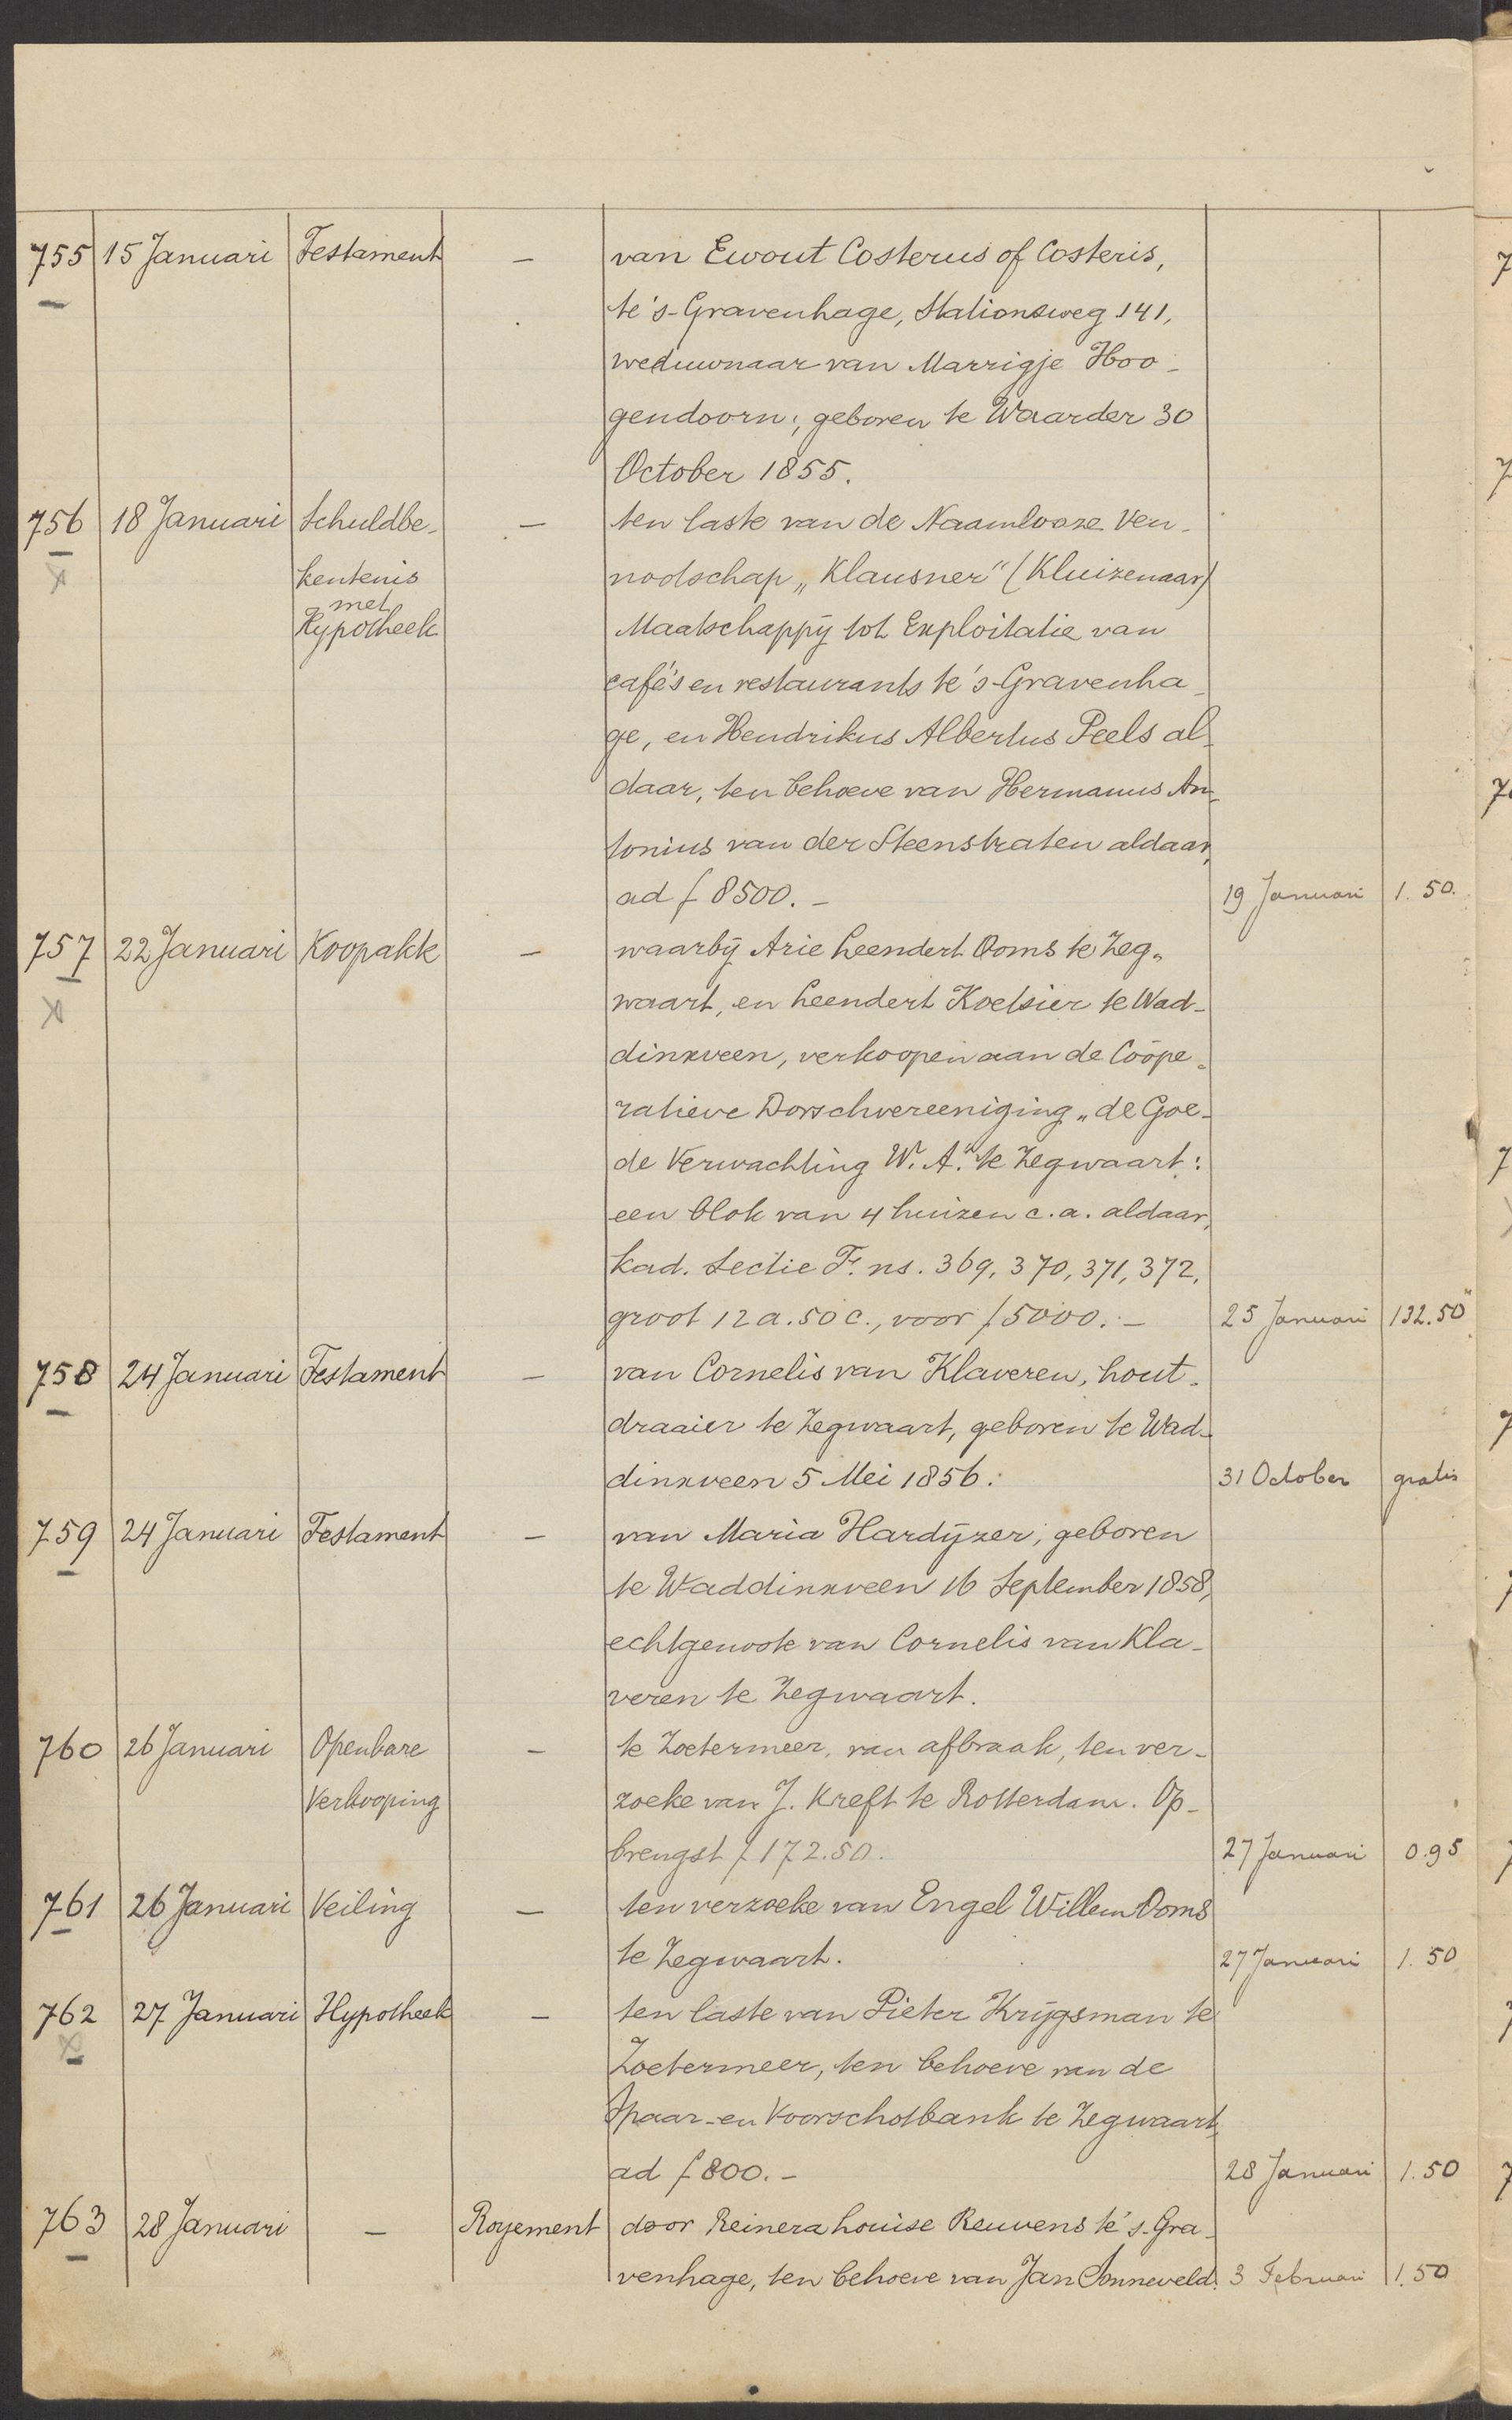 755 15 Januari Testament — van Ewout Costerus of Costeris,
te 's-Gravenhage, Stationsweg 141,
weduwnaar van Marrigje Hoo-
gendoorn, geboren te Waarder 30
October 1855.
756 18 Januari Schuldbe- — ten laste van de Naamlooze Ven-
kentenis nootschap „Klausner" (Kluizenaar)
met
Hypotheek Maatschappij tot Exploitatie van
café's en restaurants te 's-Gravenha-
ge, en Hendrikus Albertus Peels al-
daar, ten behoeve van Hermanus An-
tonius van der Steenstraten aldaar,
ad f 8500.- 19 Januari 1.50.
757 22 Januari Koopakte — waarbij Arie Leendert Ooms te Zeg-
waart, en Leendert Koetsier te Wad-
dinxveen, verkoopen aan de Coöpe-
ratieve Dorschvereeniging „de Goe-
de Verwachting W. A." te Zegwaart:
een blok van 4 huizen c.a. aldaar,
kad. Sectie F. ns. 369, 370, 371, 372,
groot 12 a. 50 c., voor f 5000.- 25 Januari 132.50
758 24 Januari Testament — van Cornelis van Klaveren, hout-
draaier te Zegwaart, geboren te Wad-
dinxveen 5 Mei 1856. 31 October gratis
759 24 Januari Testament — van Maria Hardijzer, geboren
te Waddinxveen 16 September 1858,
echtgenoote van Cornelis van Kla-
veren te Zegwaart.
760 26 Januari Openbare — te Zoetermeer, van afbraak, ten ver-
Verkooping zoeke van J. Kreft te Rotterdam. Op-
brengst f 172.50. 27 Januari 0.95
761 26 Januari Veiling — ten verzoeke van Engel Willem Ooms
te Zegwaart. 27 Januari 1.50
762 27 Januari Hypotheek — ten laste van Pieter Krijgsman te
Zoetermeer, ten behoeve van de
Spaar- en Voorschotbank te Zegwaart,
ad f 800.- 28 Januari 1.50
763 28 Januari — Royement door Reinera Louise Reuvens te 's-Gra-
venhage, ten behoeve van Jan Sonneveld. 3 Februari 1.50